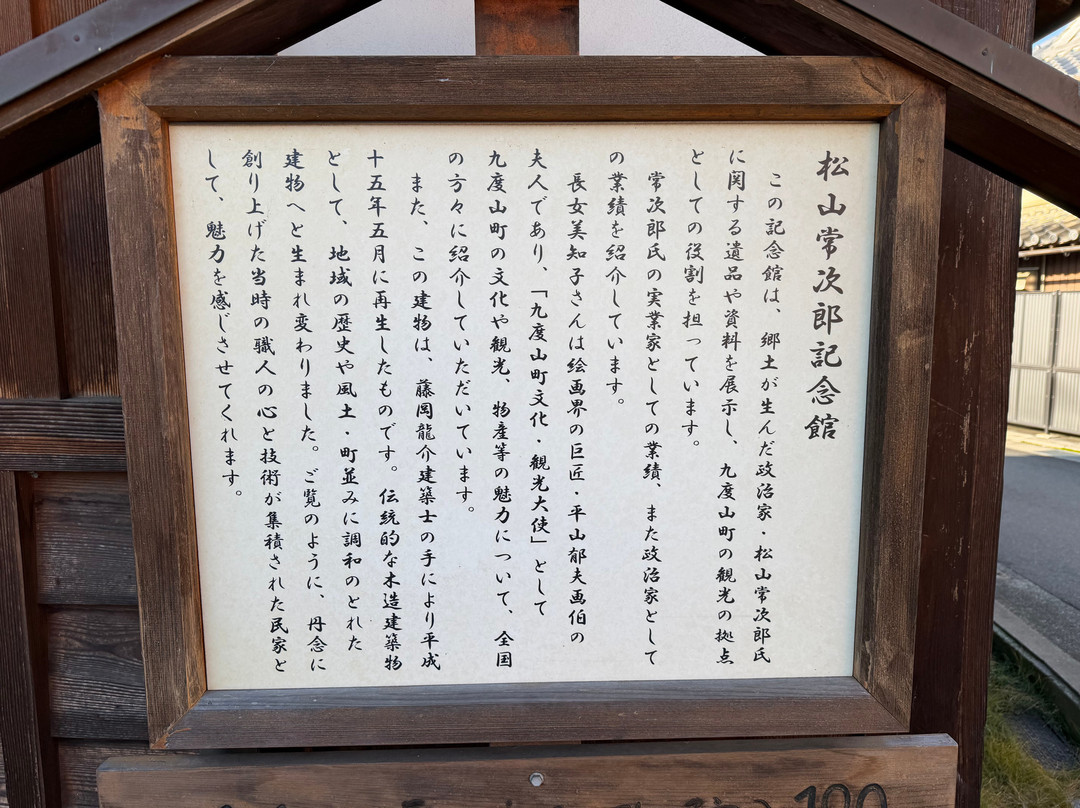 松山常次郎記念館
この記念館は、郷土が生んだ政治家・松山常次郎氏
に関する遺品や資料を展示し、九度山町の観光の拠点
としての役割を担っています。
常次郎氏の実業家としての業績、また政治家として
の業績を紹介しています。
長女美知子さんは絵画界の巨匠・平山郁夫画伯の
夫人であり、「九度山町文化・観光大使」として
九度山町の文化や観光、物産等の魅力について、全国
の方々に紹介していただいています。
また、この建物は、藤岡龍介建築士の手により平成
十五年五月に再生したものです。伝統的な木造建築物
として、地域の歴史や風土・町並みに調和のとれた
建物へと生まれ変わりました。ご覧のように、丹念に
創り上げた当時の職人の心と技術が集積された民家と
して、魅力を感じさせてくれます。
100